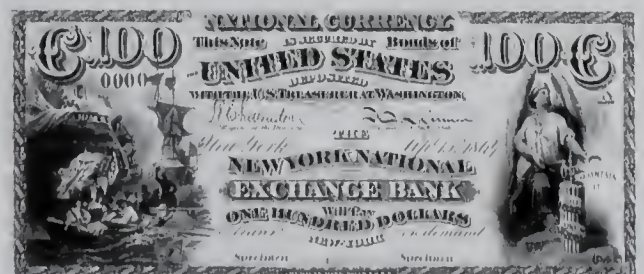 NATIONAL CURRENCY
C 100 This Note IS SECURED BY Bonds of 100 C
0000
UNITED STATES
DEPOSITED
WITH THE U.S. TREASURER AT WASHINGTON,
THE
New York
NEW YORK NATIONAL
EXCHANGE BANK
Will Pay
ONE HUNDRED DOLLARS
on demand
NEW-YORK
Specimen Specimen